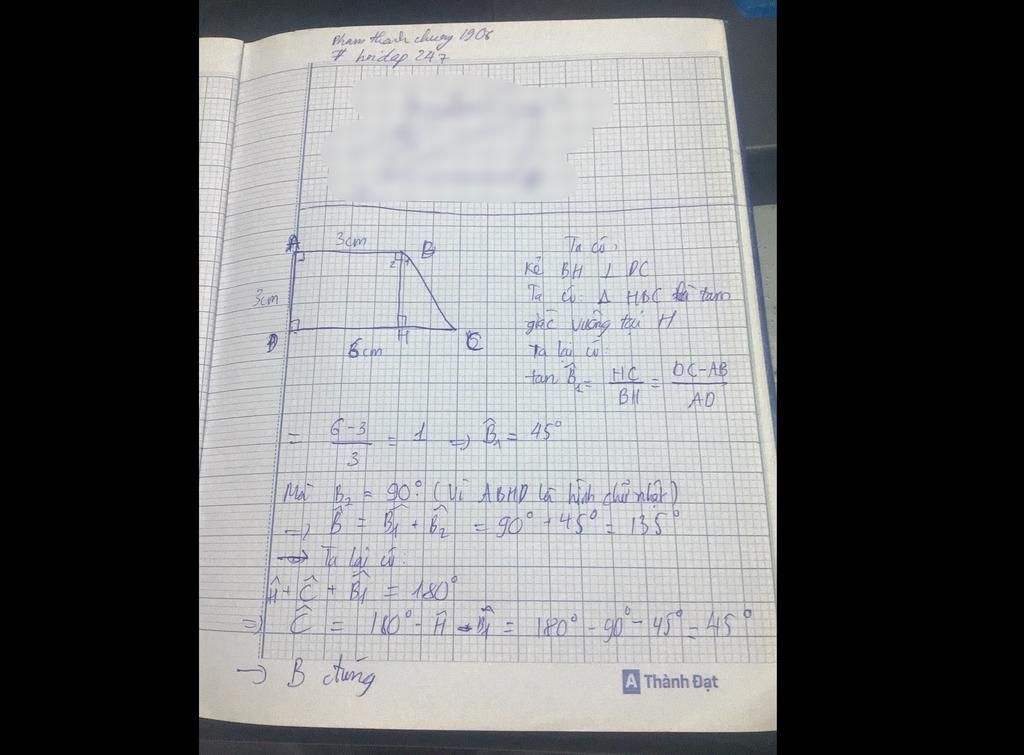 Phạm thanh chung 1908
# hoidap 247
A 3cm B
2 1
3cm
D H C
6cm
Ta có,
Kẻ BH ⊥ DC
Ta có: Δ HBC là tam
giác vuông tại H
Ta lại có:
tan B̂₁ = HC/BH = DC-AB/AD
= 6-3/3 = 1 => B̂₁ = 45°
Mà B₂ = 90° (Vì ABHD là hình chữ nhật)
=> B̂ = B̂₁ + B̂₂ = 90° + 45° = 135°
Ta lại có:
Ĥ + Ĉ + B̂₁ = 180°
=> Ĉ = 180° - Ĥ - B̂₁ = 180° - 90° - 45° = 45°
→ B đúng
A Thành Đạt